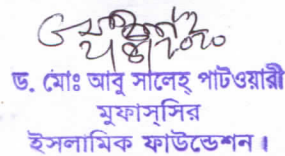 ড. মোঃ আবু সালেহ্ পাটওয়ারী
মুফাস্সির
ইসলামিক ফাউন্ডেশন।